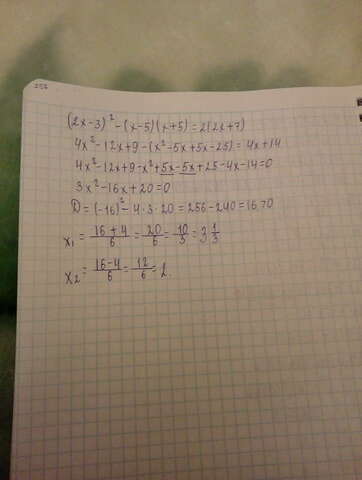 (2x-3)² - (x-5)(x+5) = 2(2x+7)
4x² - 12x + 9 - (x² - 5x + 5x - 25) = 4x + 14
4x² - 12x + 9 - x² + 5x - 5x + 25 - 4x - 14 = 0
3x² - 16x + 20 = 0
D = (-16)² - 4·3·20 = 256 - 240 = 16 > 0
x₁ = (16+4)/6 = 20/6 = 10/3 = 3 1/3
x₂ = (16-4)/6 = 12/6 = 2.